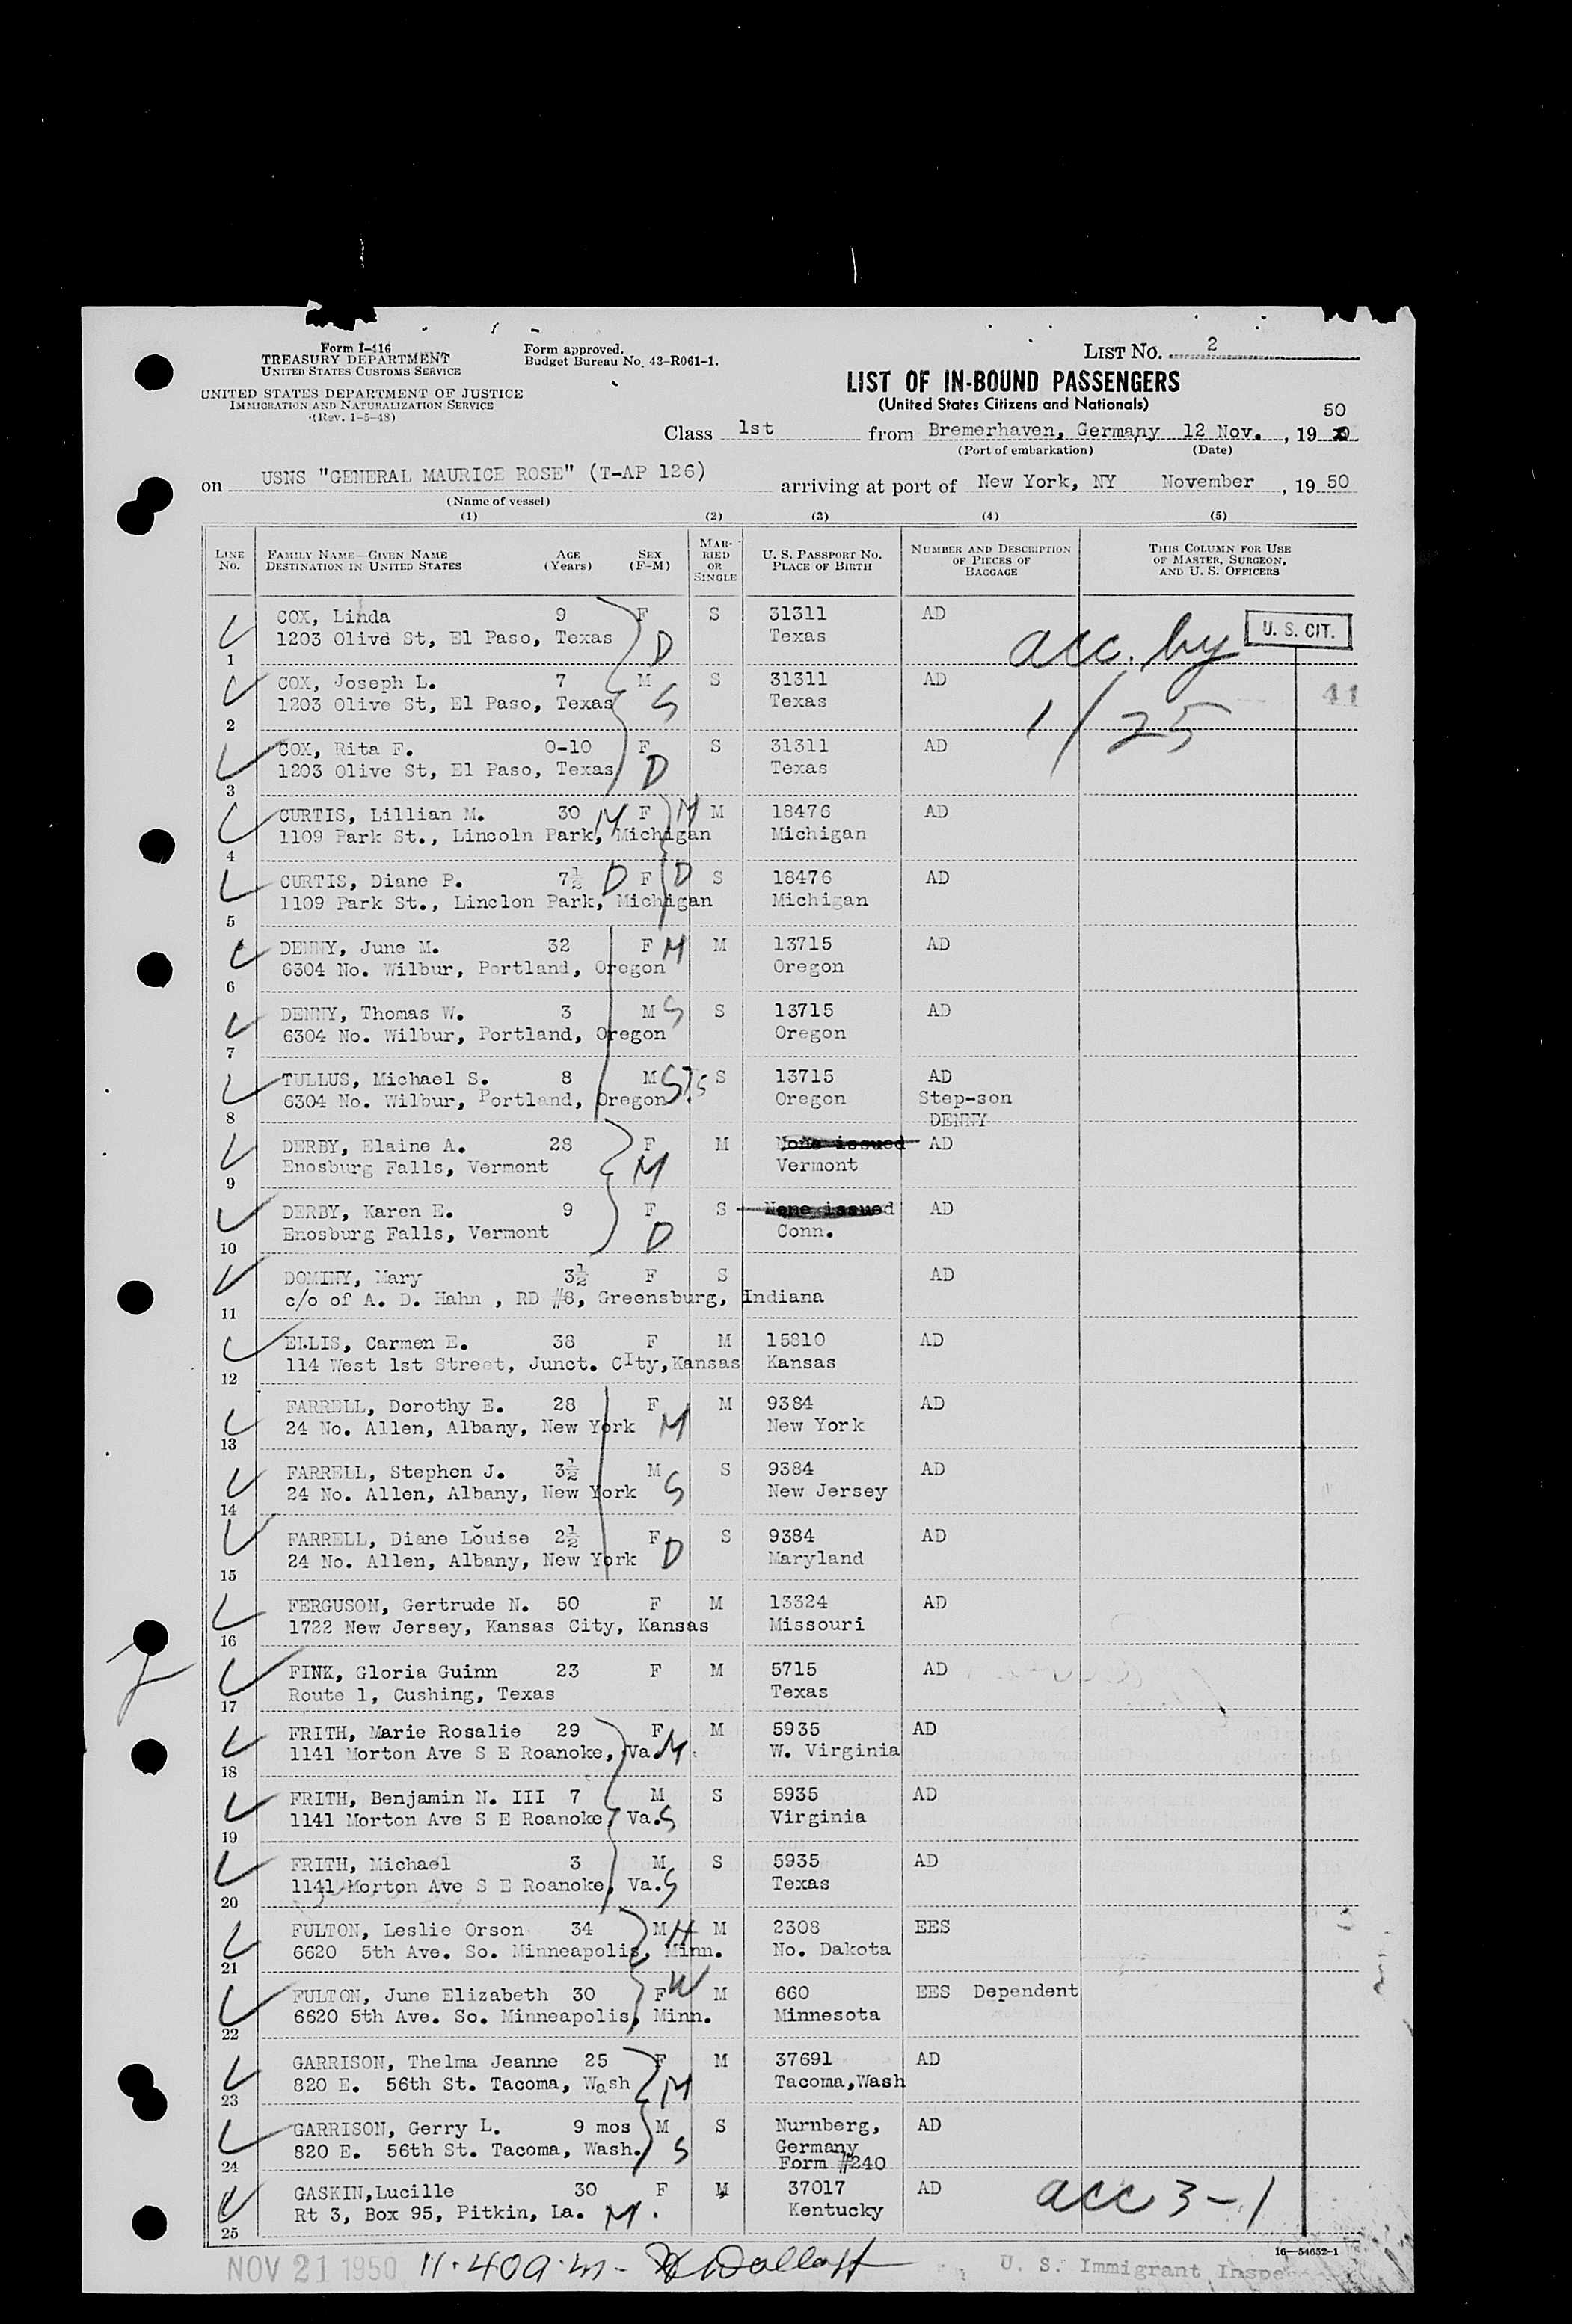 Form I-416
TREASURY DEPARTMENT
UNITED STATES CUSTOMS SERVICE
UNITED STATES DEPARTMENT OF JUSTICE
IMMIGRATION AND NATURALIZATION SERVICE
(Rev. 1-5-48)
Form approved.
Budget Bureau No. 43-R061-1.
LIST NO. 2
LIST OF IN-BOUND PASSENGERS
(United States Citizens and Nationals)
Class 1st from Bremerhaven, Germany 12 Nov., 19 50
(Port of embarkation) (Date)
on USNS "GENERAL MAURICE ROSE" (T-AP 126) arriving at port of New York, NY November, 19 50
(Name of vessel)
(1) (2) (3) (4) (5)
LINE NO. FAMILY NAME—GIVEN NAME DESTINATION IN UNITED STATES AGE (Years) SEX (F-M) MARRIED OR SINGLE U. S. PASSPORT NO. PLACE OF BIRTH NUMBER AND DESCRIPTION OF PIECES OF BAGGAGE THIS COLUMN FOR USE OF MASTER, SURGEON, AND U. S. OFFICERS
COX, Linda 9 F S 31311 AD
1 1203 Olive St, El Paso, Texas D Texas acc. by U. S. CIT.
COX, Joseph L. 7 M S 31311 AD 41
2 1203 Olive St, El Paso, Texas S Texas 1/25
COX, Rita F. 0-10 F S 31311 AD
3 1203 Olive St, El Paso, Texas D Texas
CURTIS, Lillian M. 30 M F M M 18476 AD
4 1109 Park St., Lincoln Park, Michigan Michigan
CURTIS, Diane P. 7½ D F D S 18476 AD
5 1109 Park St., Linclon Park, Michigan Michigan
DENNY, June M. 32 F M M 13715 AD
6 6304 No. Wilbur, Portland, Oregon Oregon
DENNY, Thomas W. 3 M S S 13715 AD
7 6304 No. Wilbur, Portland, Oregon Oregon
TULLUS, Michael S. 8 M S S 13715 AD
8 6304 No. Wilbur, Portland, Oregon Oregon Step-son
DENNY
DERBY, Elaine A. 28 F M None issued AD
9 Enosburg Falls, Vermont M Vermont
DERBY, Karen E. 9 F S None issued AD
10 Enosburg Falls, Vermont D Conn.
DOMINY, Mary 3½ F S AD
11 c/o of A. D. Hahn , RD #8, Greensburg, Indiana
ELLIS, Carmen E. 38 F M 15810 AD
12 114 West 1st Street, Junct. CIty,Kansas Kansas
FARRELL, Dorothy E. 28 F M 9384 AD
13 24 No. Allen, Albany, New York M New York
FARRELL, Stephen J. 3½ M S 9384 AD
14 24 No. Allen, Albany, New York S New Jersey
FARRELL, Diane Louise 2½ F S 9384 AD
15 24 No. Allen, Albany, New York D Maryland
FERGUSON, Gertrude N. 50 F M 13324 AD
16 1722 New Jersey, Kansas City, Kansas Missouri
FINK, Gloria Guinn 23 F M 5715 AD
17 Route 1, Cushing, Texas Texas
FRITH, Marie Rosalie 29 F M 5935 AD
18 1141 Morton Ave S E Roanoke, Va. M W. Virginia
FRITH, Benjamin N. III 7 M S 5935 AD
19 1141 Morton Ave S E Roanoke, Va. S Virginia
FRITH, Michael 3 M S 5935 AD
20 1141 Morton Ave S E Roanoke, Va. S Texas
FULTON, Leslie Orson 34 M H M 2308 EES
21 6620 5th Ave. So. Minneapolis, Minn. No. Dakota
FULTON, June Elizabeth 30 F W M 660 EES Dependent
22 6620 5th Ave. So. Minneapolis, Minn. Minnesota
GARRISON, Thelma Jeanne 25 F M 37691 AD
23 820 E. 56th St. Tacoma, Wash M Tacoma,Wash
GARRISON, Gerry L. 9 mos M S Nurnberg, AD
24 820 E. 56th St. Tacoma, Wash. S Germany
Form #240
GASKIN,Lucille 30 F M 37017 AD acc 3-1
25 Rt 3, Box 95, Pitkin, La. M. Kentucky
16—54652-1
NOV 21 1950 11.40 a.m - U. S. Immigrant